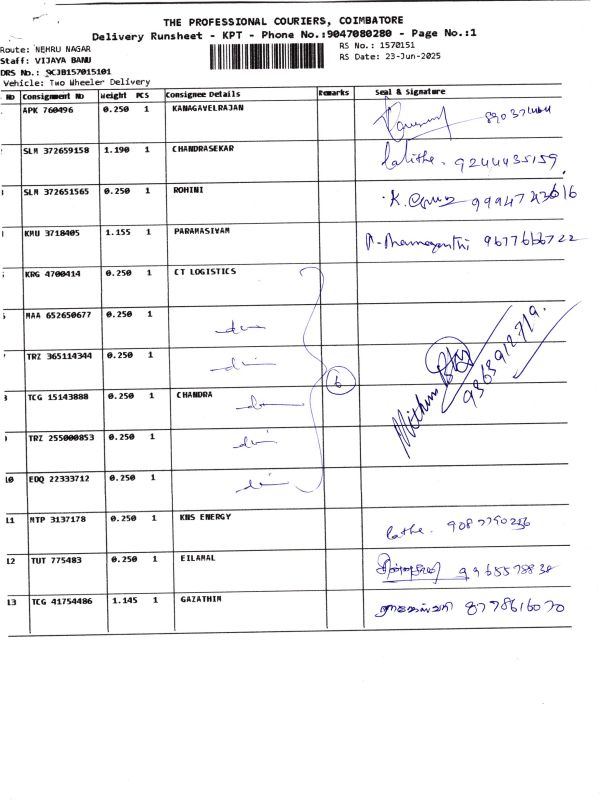 THE PROFESSIONAL COURIERS, COIMBATORE
Delivery Runsheet - KPT - Phone No.:9047080280 - Page No.:1
Route: NEHRU NAGAR
RS No.: 1570151
Staff: VIJAYA BANU
RS Date: 23-Jun-2025
DRS No.: SCJB157015101
Vehicle: Two Wheeler Delivery
No Consignment No Weight PCS Consignee Details Remarks Seal & Signature
APK 760496 0.250 1 KANAGAVELRAJAN
2 SLM 372659158 1.190 1 CHANDRASEKAR Lalitha. 9244435159
3 SLM 372651565 0.250 1 ROHINI K.
KMU 3718405 1.155 1 PARAMASIVAM 9677666722
KRG 4700414 0.250 1 CT LOGISTICS
MAA 652650677 0.250 1
TRZ 365114344 0.250 1
6
Mithun
9363912719
TCG 15143888 0.250 1 CHANDRA
TRZ 255000853 0.250 1
10 EDQ 22333712 0.250 1
11 MTP 3137178 0.250 1 KNS ENERGY Latha. 9087790256
12 TUT 775483 0.250 1 EILAMAL 9965578838
13 TCG 41754486 1.145 1 GAZATHIM 8778616070